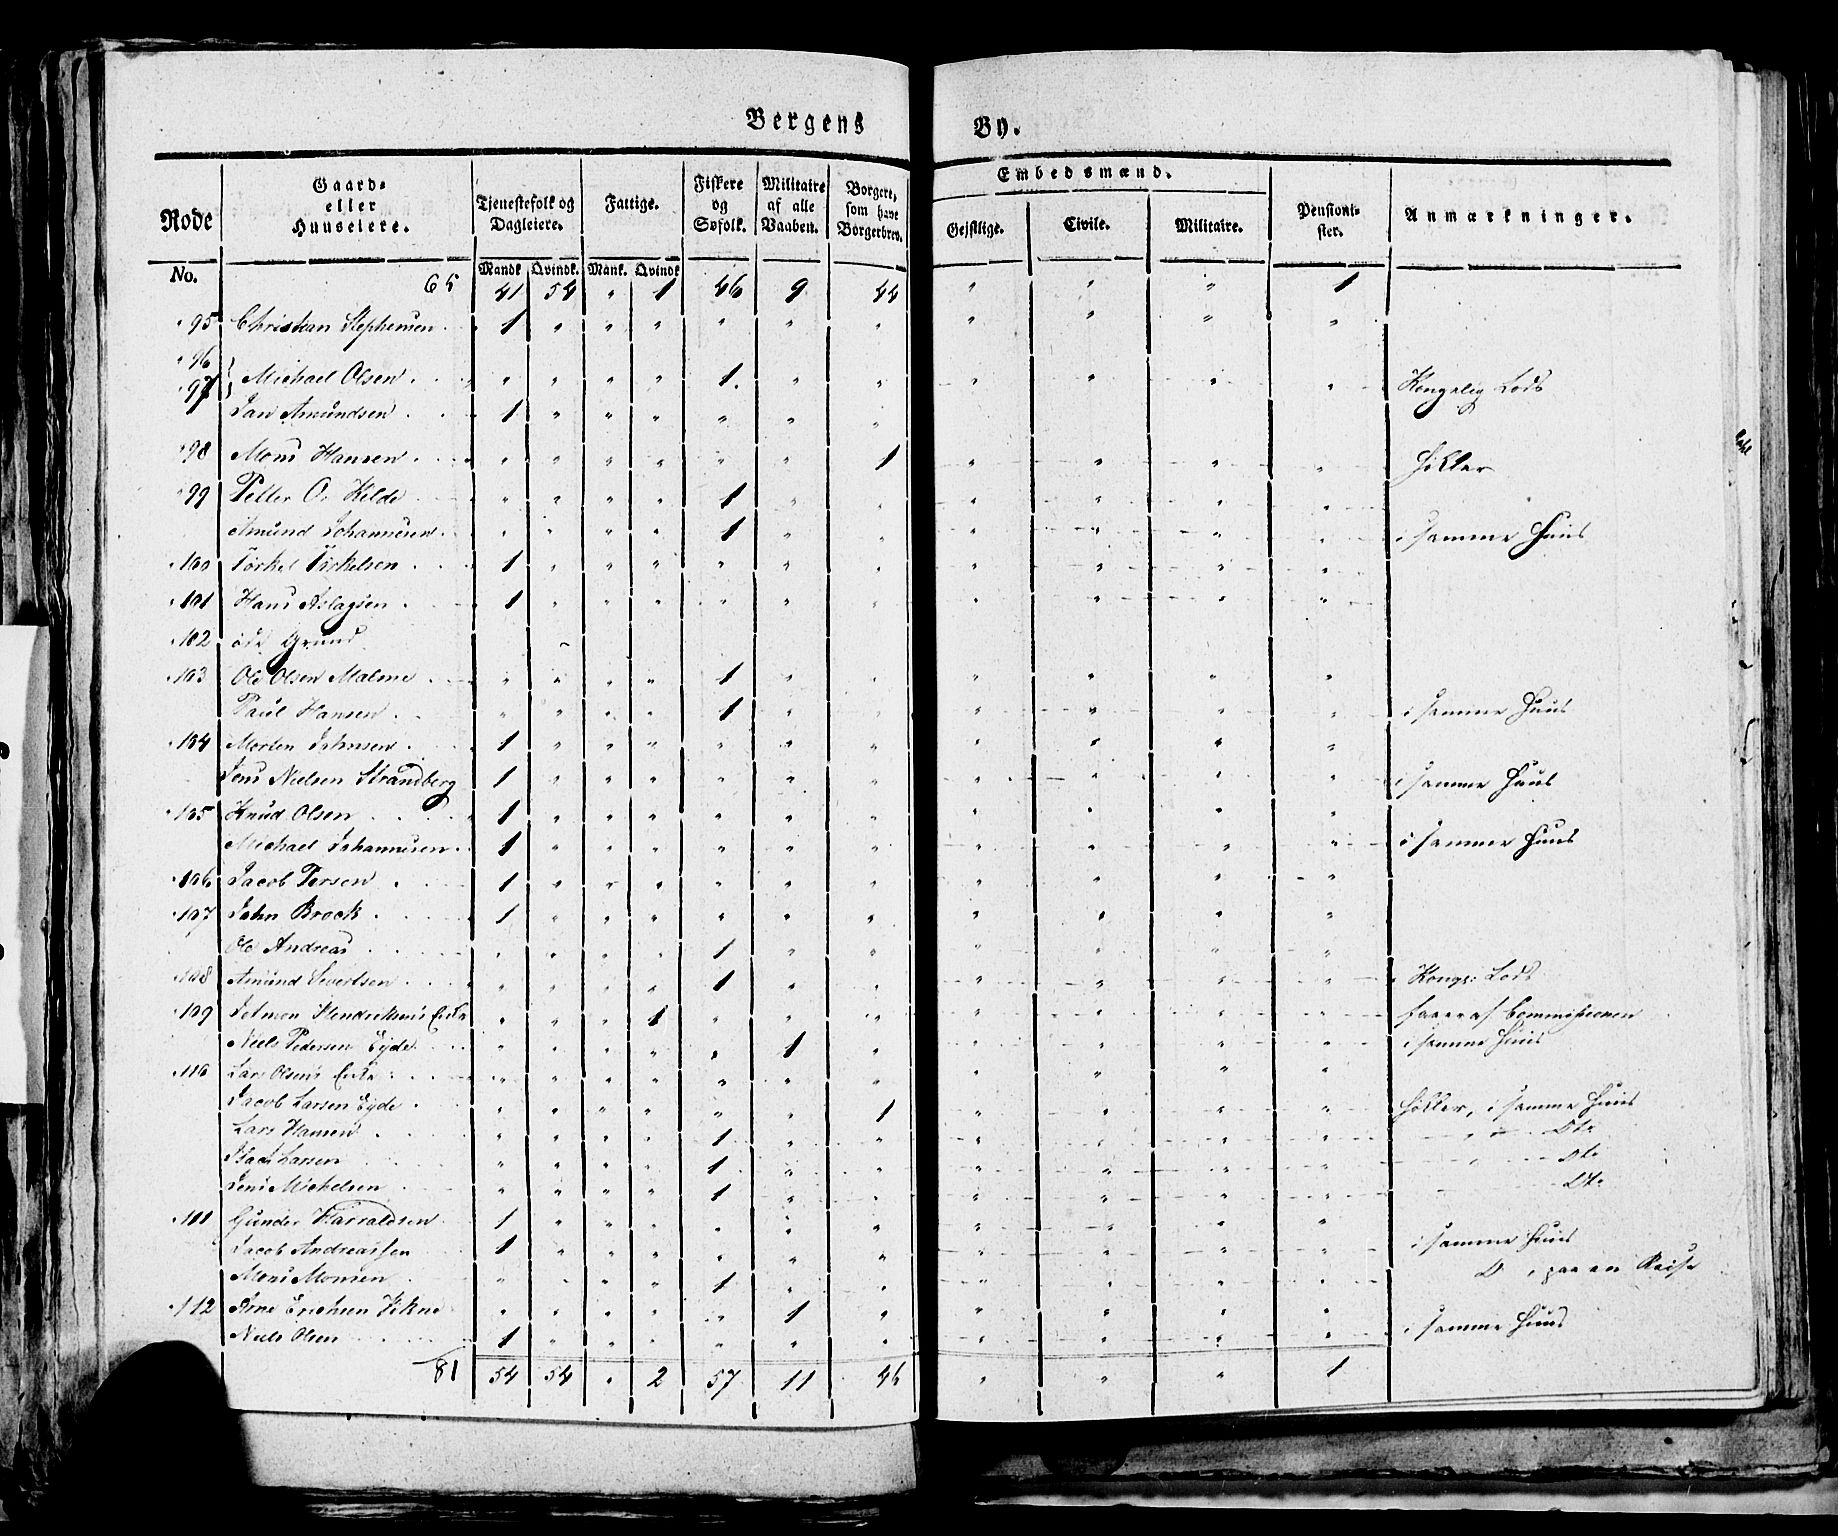 Bergens By.
Rode No. | Gaard- eller Huuseiere. | Tjenestefolk og Dagleiere. Mandk. Qvindk. | Fattige. Mank. Qvindk. | Fiskere og Søfolk. | Militaire af alle Vaaben. | Borgere, som have Borgerbrev. | Embedsmænd. Gejstlige. Civile. Militaire. | Pensionister. | Anmærkninger.
65 41 54 " 1 46 9 44 " " " 1
" 95 Christian Stephensen . 1 " " " " " " " " " "
" 96
" 97 } Michael Olsen . . " " " " 1. " " " " " " Kongelig Lods
Jan Amundsen . . 1 " " " " " "
" 98 Mons Hansen . . " " " " " " 1 " " " " Høkler
" 99 Petter O. Kilde " " " " 1 " " " " " "
Amund Johannesen . " " " " 1 " " " " " " i samme Huus
" 100 Torkel Tirkelsen . . 1 " " " " " " " " " "
" 101 Hans Aslagsen . 1 " " " " " " " " " "
" 102 øde Grund
" 103 Ole Olsen Malme " " " " 1 " " " " " "
Paul Hansen . . " " " " 1 " " " " " " i samme Huus
" 104 Morten Johnsen . 1 " " " " " " " " " "
Jens Nielsen Strandberg 1 " " " " " " " " " " i samme Huus
" 105 Knud Olsen . . . 1 " " " " " " " " " "
Michael Johannesen . 1 " " " " " " " " " " i samme Huus
" 106 Jacob Persen . . 1 " " " " " " " " " "
" 107 John Brock . . . 1 " " " " " " " " " "
Ole Andreas . . . " " " " 1 " " " " " "
" 108 Amund Sivertsen . " " " " 1 " " " " " " Kongs: Lods
" 109 Hendriksens Enke " " " 1 " " " " " " " af Commissionen
Niels Pedersen Eyde " " " " " 1 " " " " " i samme Huus
" 110 Lars Olsens Enke . . . " " " " " " " " " " "
Jacob Larsen Eyde . " " " " " " 1 " " " " Høkler, i samme Huus
Lars Hansen . . . " " " " 1 " " " Dto
Larsen . . . " " " " 1 " " " " " " Dto
Jens Michelsen . . " " " " 1 " " " " " " Dto
" 111 Gunder Harraldsen . 1 " " " " " " " " " "
Jacob Andreassen 1 " " " " " " " " " " i samme Huus
Mons Monsen . . " " " " 1 " " " " " " D , paa en Reise
" 112 Arne Erichsen Vikne " " " " " 1 " " " " "
Niels Olsen . . . 1 " " " " " " " " " " i samme Huus
81 54 54 " 2 57 11 46 " " " 1